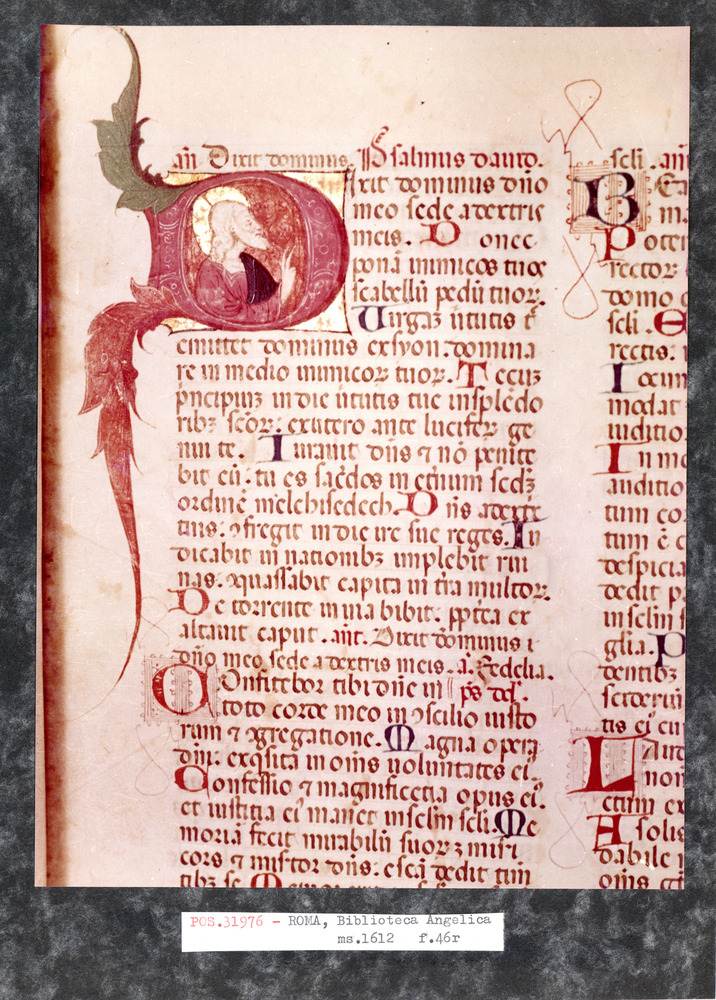 añ Dixit dominus. Psalmus dauid.
ixit dominus dño
meo sede a dextris
meis. Donec
ponã inimicos tuos
scabellũ pedũ tuoꝝ.
Uirgaʒ ũtutis t̃
emittet dominus ex syon. domina
re in medio inimicoꝝ tuoꝝ. Tecuʒ
pncipiuʒ in die ũtutis tue in splẽdo
ribʒ scõꝝ: ex utero ante lucifeꝝ ge
nui te. Iurauit dñs ⁊ nõ penite
bit eũ: tu es sac̃dos in et̃num scđʒ
ordinẽ melchisedech. Dñs a dextr
tuis: ꝯfregit in die ire sue reges. Iu
dicabit in nationibʒ implebit rui
nas: ꝯquassabit capita in t̃ra multoꝝ.
De torrente in uia bibit: ꝓpt̃ea ex
altauit caput. añt. Dixit dominus
dño meo sede a dextris meis. a. Fidelia.
Onfitebor tibi dñe in ps dđ.
toto corde meo in ꝯscilio iusto
rum ⁊ ꝯgregatione. Magna opera
dñi: exq̃sita in om̃s uoluntates ei᾿.
Confessio ⁊ magnificẽtia opus ei᾿.
et iustitia ei᾿ manet in sc̃lm sc̃li. Me
moriã fecit mirabiliũ suoꝝ misi
cors ⁊ mis̃tor dñs: escã dedit tim
tibʒ se
sc̃li. añ
B
in
Poten
rector
domo
sc̃li. E
rectis:
Iocun
modat
iuditio
In me
auditio
tum co
tum
despicia
dedit p
in sc̃lm s
glia. P
dentibʒ
sederũ
tis ei᾿ cũ
L
non
ctum ex
A solis
dabile
om̃s
POS.31976 - ROMA, Biblioteca Angelica
ms.1612 f.46r